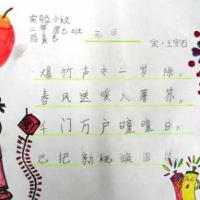 实验小校
二年级七班
元日
宋·王安石
爆竹声中一岁除,
春风送暖入屠苏。
千门万户曈曈日,
总把新桃换旧